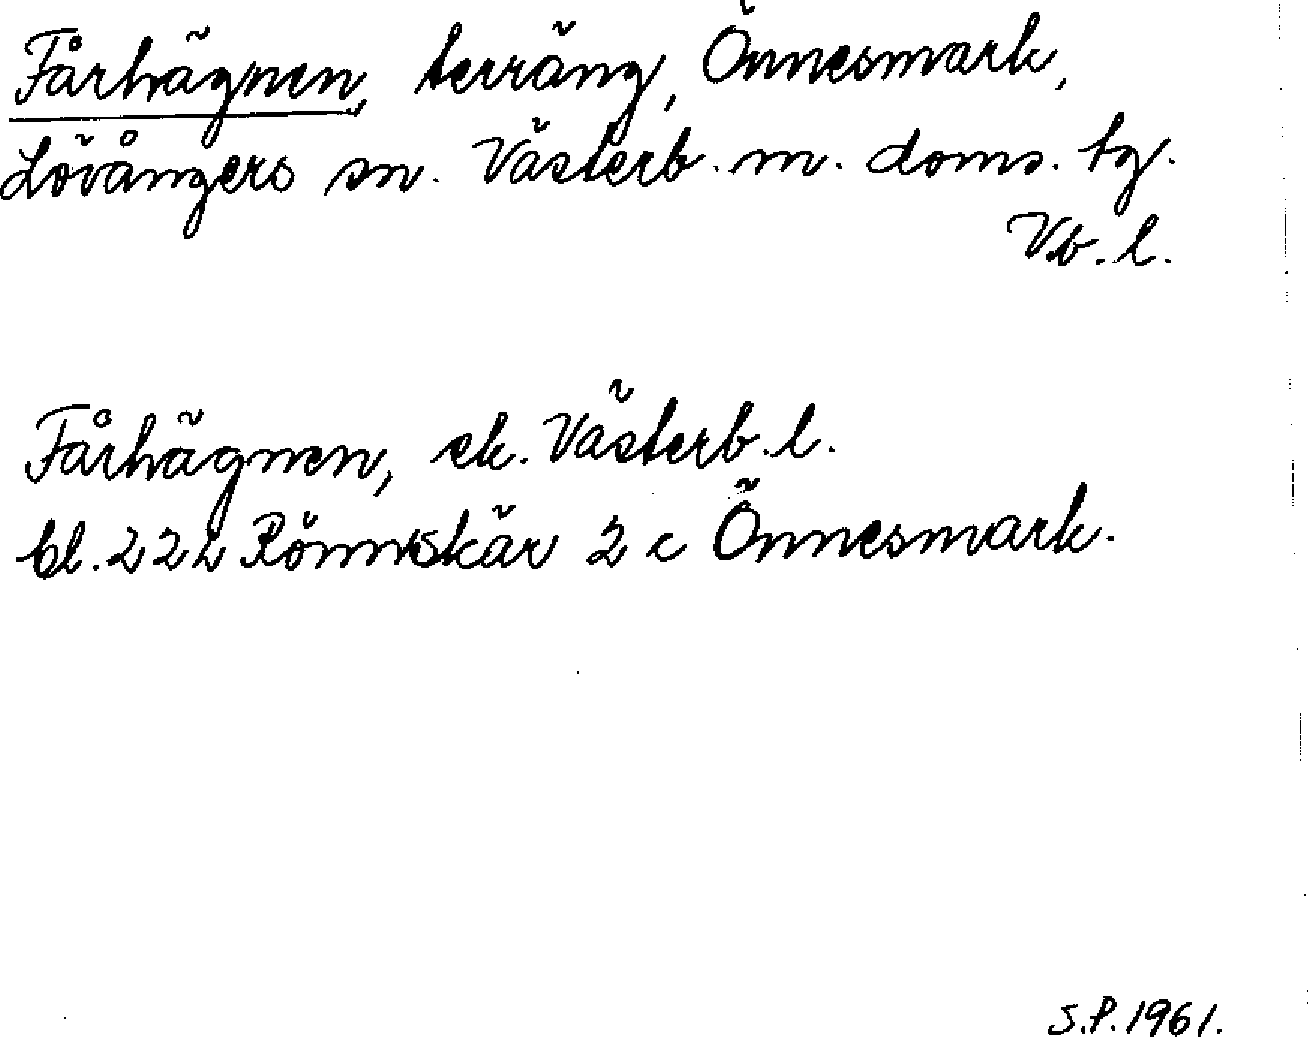 Fårhägnen, terräng, Önnesmark,
Lövångers sn. Västerb. m. doms. tg.
Vb. l.
Fårhägnen, ek. Västerb. l.
bl. 222 Rönnskär 2 c Önnesmark.
S.P. 1961.